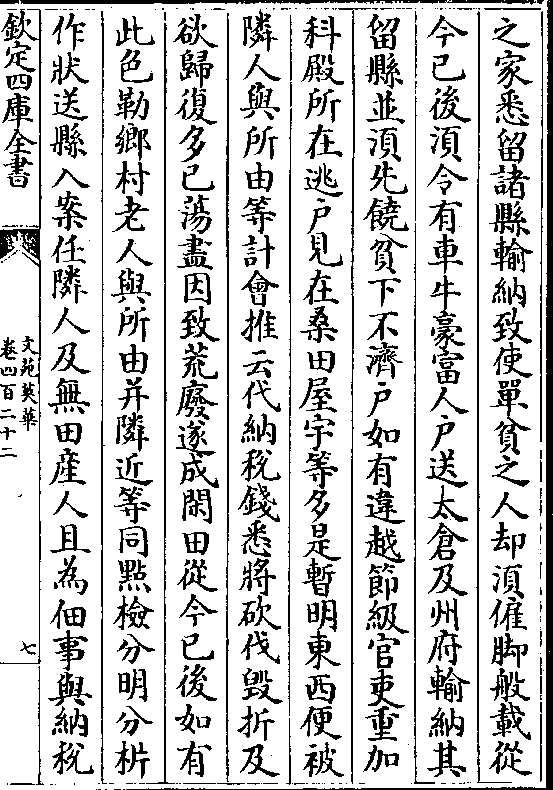 之家悉留諸縣輸納致使單貧之人却湏僱脚般載從
今已後湏令有車牛豪富人户送太倉及州府輸納其
留縣並湏先饒貧下不濟户如有違越節級官吏重加
科殿所在逃户見在桑田屋宇等多是暫明東西便被
隣人與所由等計會推云代納税錢悉將砍伐毁折及
欲歸復多已蕩盡因致荒廢遂成閑田從今已後如有
此色勒鄉村老人與所由并隣近等同點檢分明分析
作狀送縣入案任隣人及無田産人且為佃事與納税
欽定四庫全書
文苑英華
卷四百二十二
七